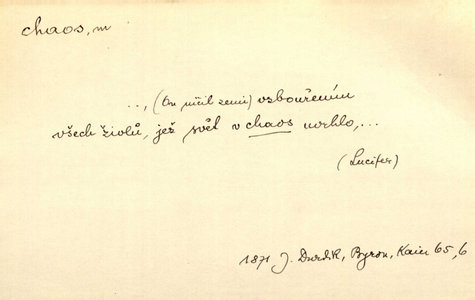 chaos, m
..., (On ničil zemi) vzbouřením
všech živlů, jež svět v chaos uvrhlo,...
(Lucifer)
1871 J. Durdík, Byron, Kain 65,6